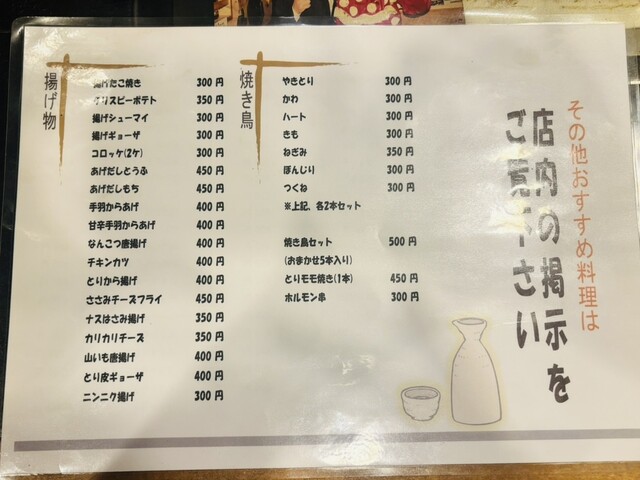 揚げ物
揚げたこ焼き 300 円
クリスピーポテト 350 円
揚げシューマイ 300 円
揚げギョーザ 300 円
コロッケ(2ケ) 300 円
あげだしとうふ 450 円
あげだしもち 450 円
手羽からあげ 400 円
甘辛手羽からあげ 400 円
なんこつ唐揚げ 400 円
チキンカツ 400 円
とりから揚げ 400 円
ささみチーズフライ 450 円
ナスはさみ揚げ 350 円
カリカリチーズ 350 円
山いも唐揚げ 400 円
とり皮ギョーザ 400 円
ニンニク揚げ 300 円
焼き鳥
やきとり 300 円
かわ 300 円
ハート 300 円
きも 300 円
ねぎみ 350 円
ぼんじり 300 円
つくね 300 円
※上記、各2本セット
焼き鳥セット 500 円
(おまかせ5本入り)
とりモモ焼き(1本) 450 円
ホルモン串 300 円
その他おすすめ料理は
店内の掲示を
ご覧下さい